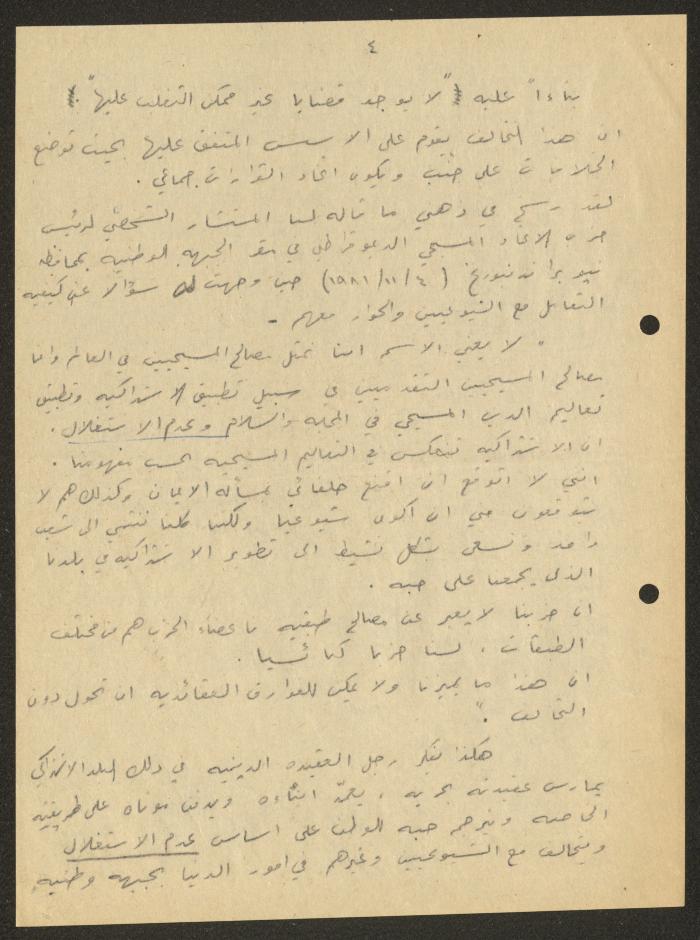 ٤
بناءاً عليه "لا يوجد قضايا غير ممكن التغلب عليها".
ان هذا التحالف يقوم على الاسس المتفق عليها بحيث توضع
الخلافات على جنب ويكون اتخاذ القرارات جماعي.
لقد رسخ في ذهني ما قاله لنا المستشار الشخصي لرئيس
حزب الاتحاد المسيحي الديموقراطي في مقر الجبهه الوطنيه بمحافظه
نيو براندنبورغ (٤/١١/١٩٨١) حين وجهت له سؤالا عن كيفيه
التعامل مع الشيوعيين والحوار معهم -
" لا يعني الاسم اننا نمثل مصالح المسيحيين في العالم وانما
مصالح المسيحيين التقدميين في سبيل تطبيق الاشتراكيه وتطبيق
تعاليم الدين المسيحي في المحبه والسلام وعدم الاستغلال.
ان الاشتراكيه تنعكس في التعاليم المسيحيه حسب مفهومنا.
انني لا اتوقع ان اقنع حلفائي بمسألة الايمان وكذلك هم لا
يتوقعون مني ان اكون شيوعيا ولكننا كلنا ننتمي الى شعب
واحد ونسعى بشكل نشيط الى تطوير الاشتراكيه في بلدنا
الذي يجمعنا على حبه.
ان حزبنا لا يعبر عن مصالح طبقيه فاعضاء الحزب هم من مختلف
الطبقات، لسنا حزبا كنائسيا.
ان هذا ما يميزنا ولا يمكن للفوارق العقائديه ان تحول دون
التحالف".
هكذا يفكر رجل العقيده الدينيه في ذلك البلد الاشتراكي
يمارس عقيدته بحريه، يعمّد ابناءه ويدفن موتاه على طريقته
الخاصه ويترجم حبه للوطن على اساس عدم الاستغلال
ويتحالف مع الشيوعيين وغيرهم في امور الدنيا بجبهه وطنيه